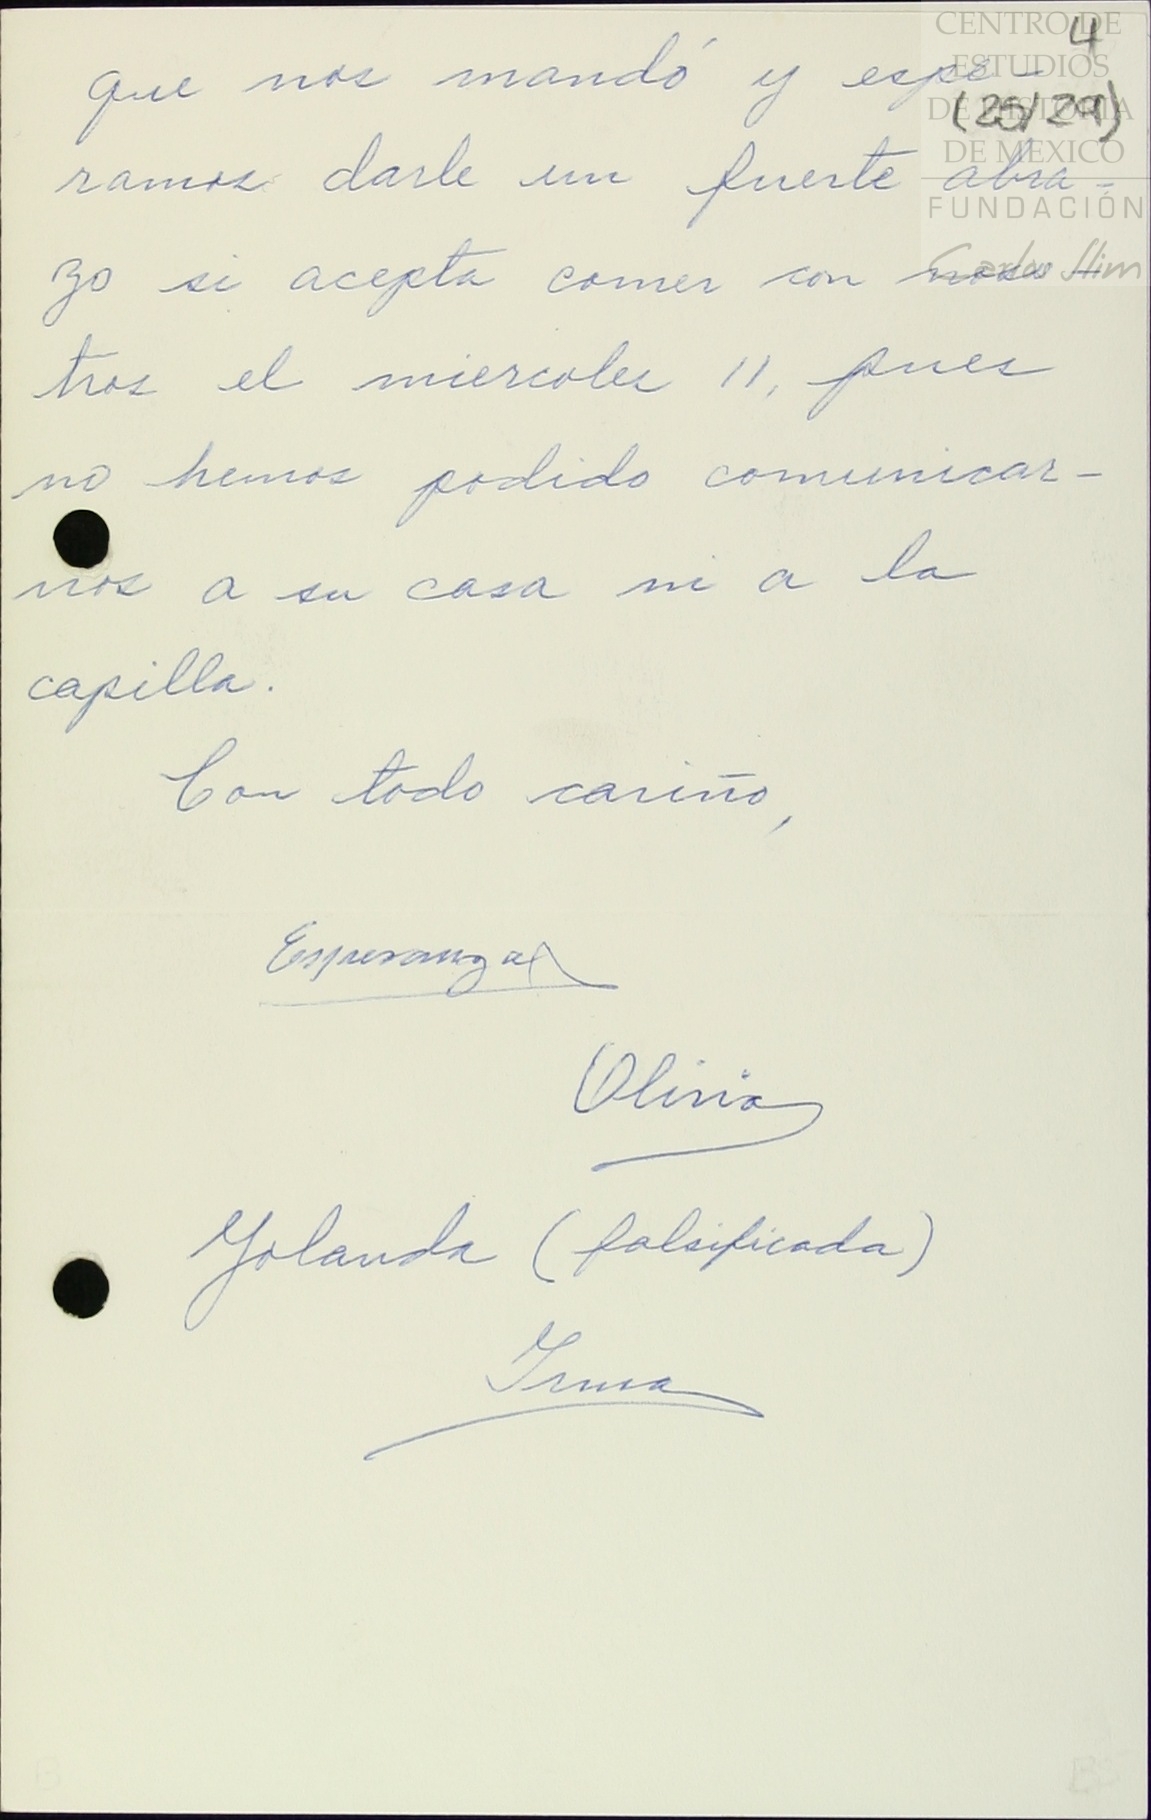 4
(25/29)
CENTRO DE
ESTUDIOS
DE HISTORIA
DE MEXICO
FUNDACIÓN
Carlos Slim
que nos mandó y espe-
ramos darle un fuerte abra-
zo si acepta comer con noso-
tros el miercoles 11, pues
no hemos podido comunicar-
nos a su casa ni a la
capilla.
Con todo cariño,
Esperanza
Olivia
Yolanda (falsificada)
Irma